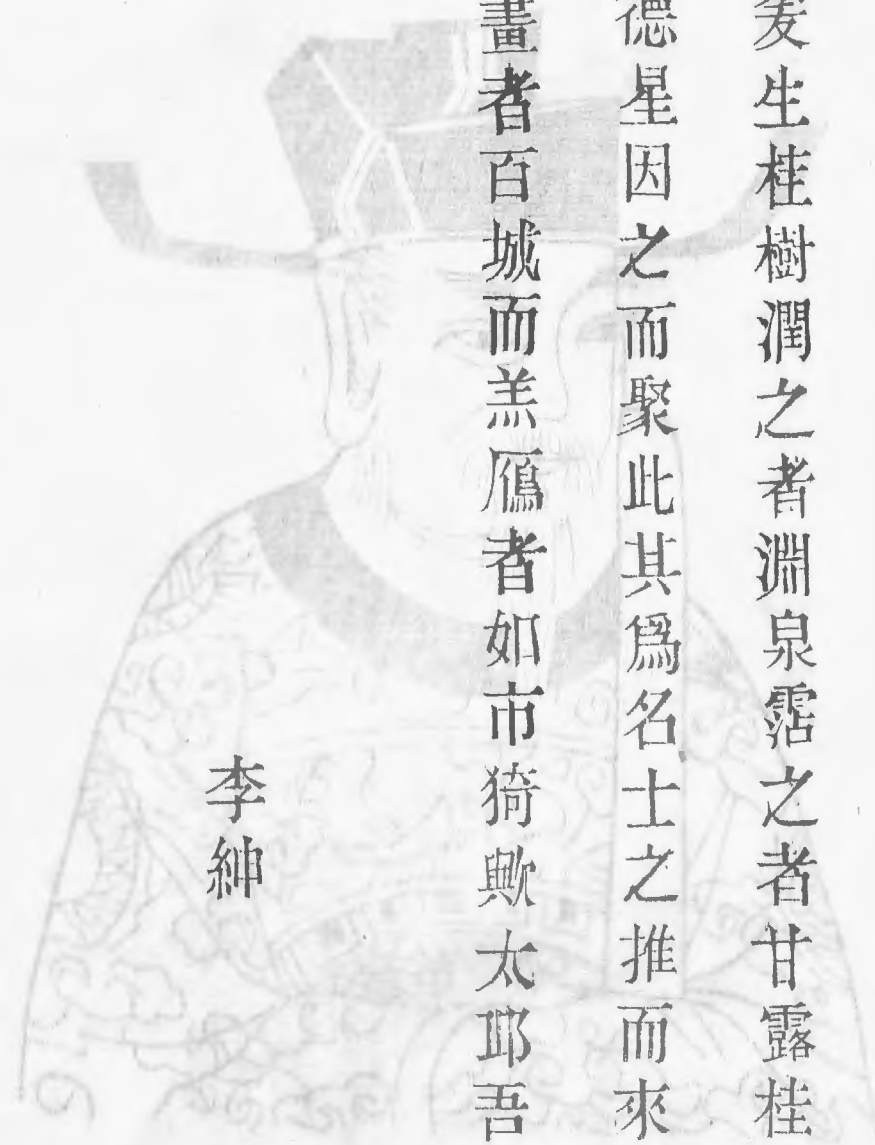 爰生桂樹潤之者淵泉霑之者甘露桂
德星因之而聚此其爲名士之推而來
畫者百城而羔鴈者如市猗歟太邱吾
李紳